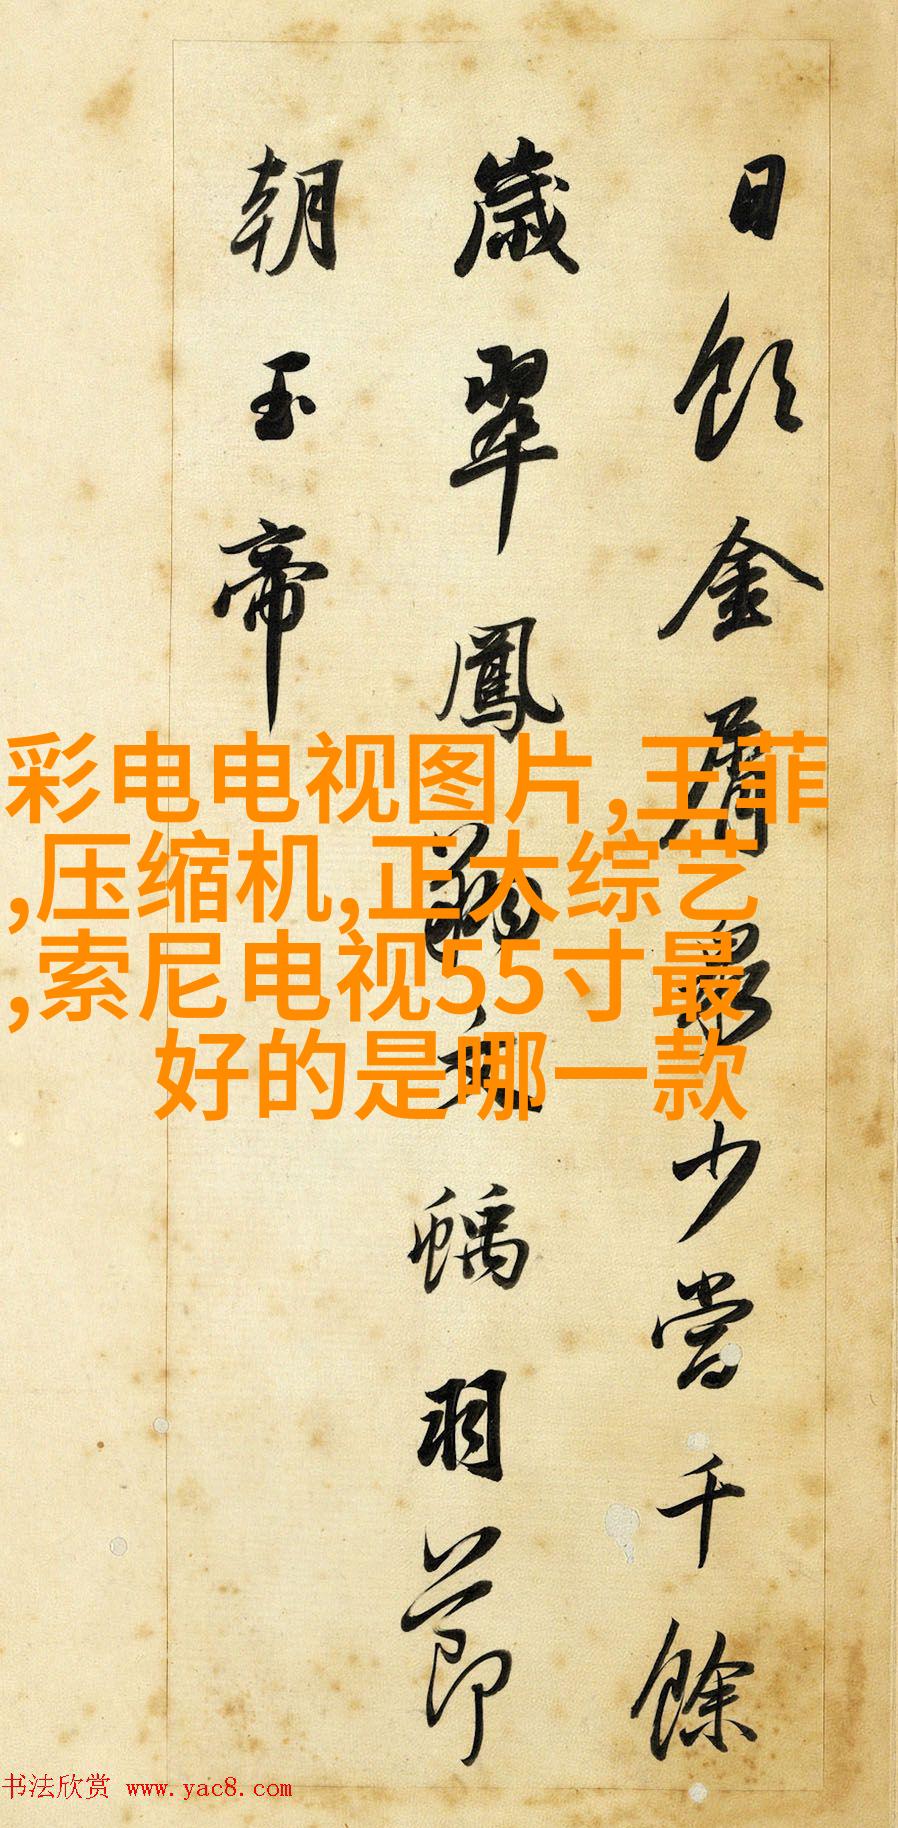 日飲金屑泉少當千餘
歲翠鳳文螭羽節
朝玉帝
彩电电视图片,王菲
,压缩机,正大综艺
,索尼电视55寸最
好的是哪一款
书法欣赏 www.yac8.com